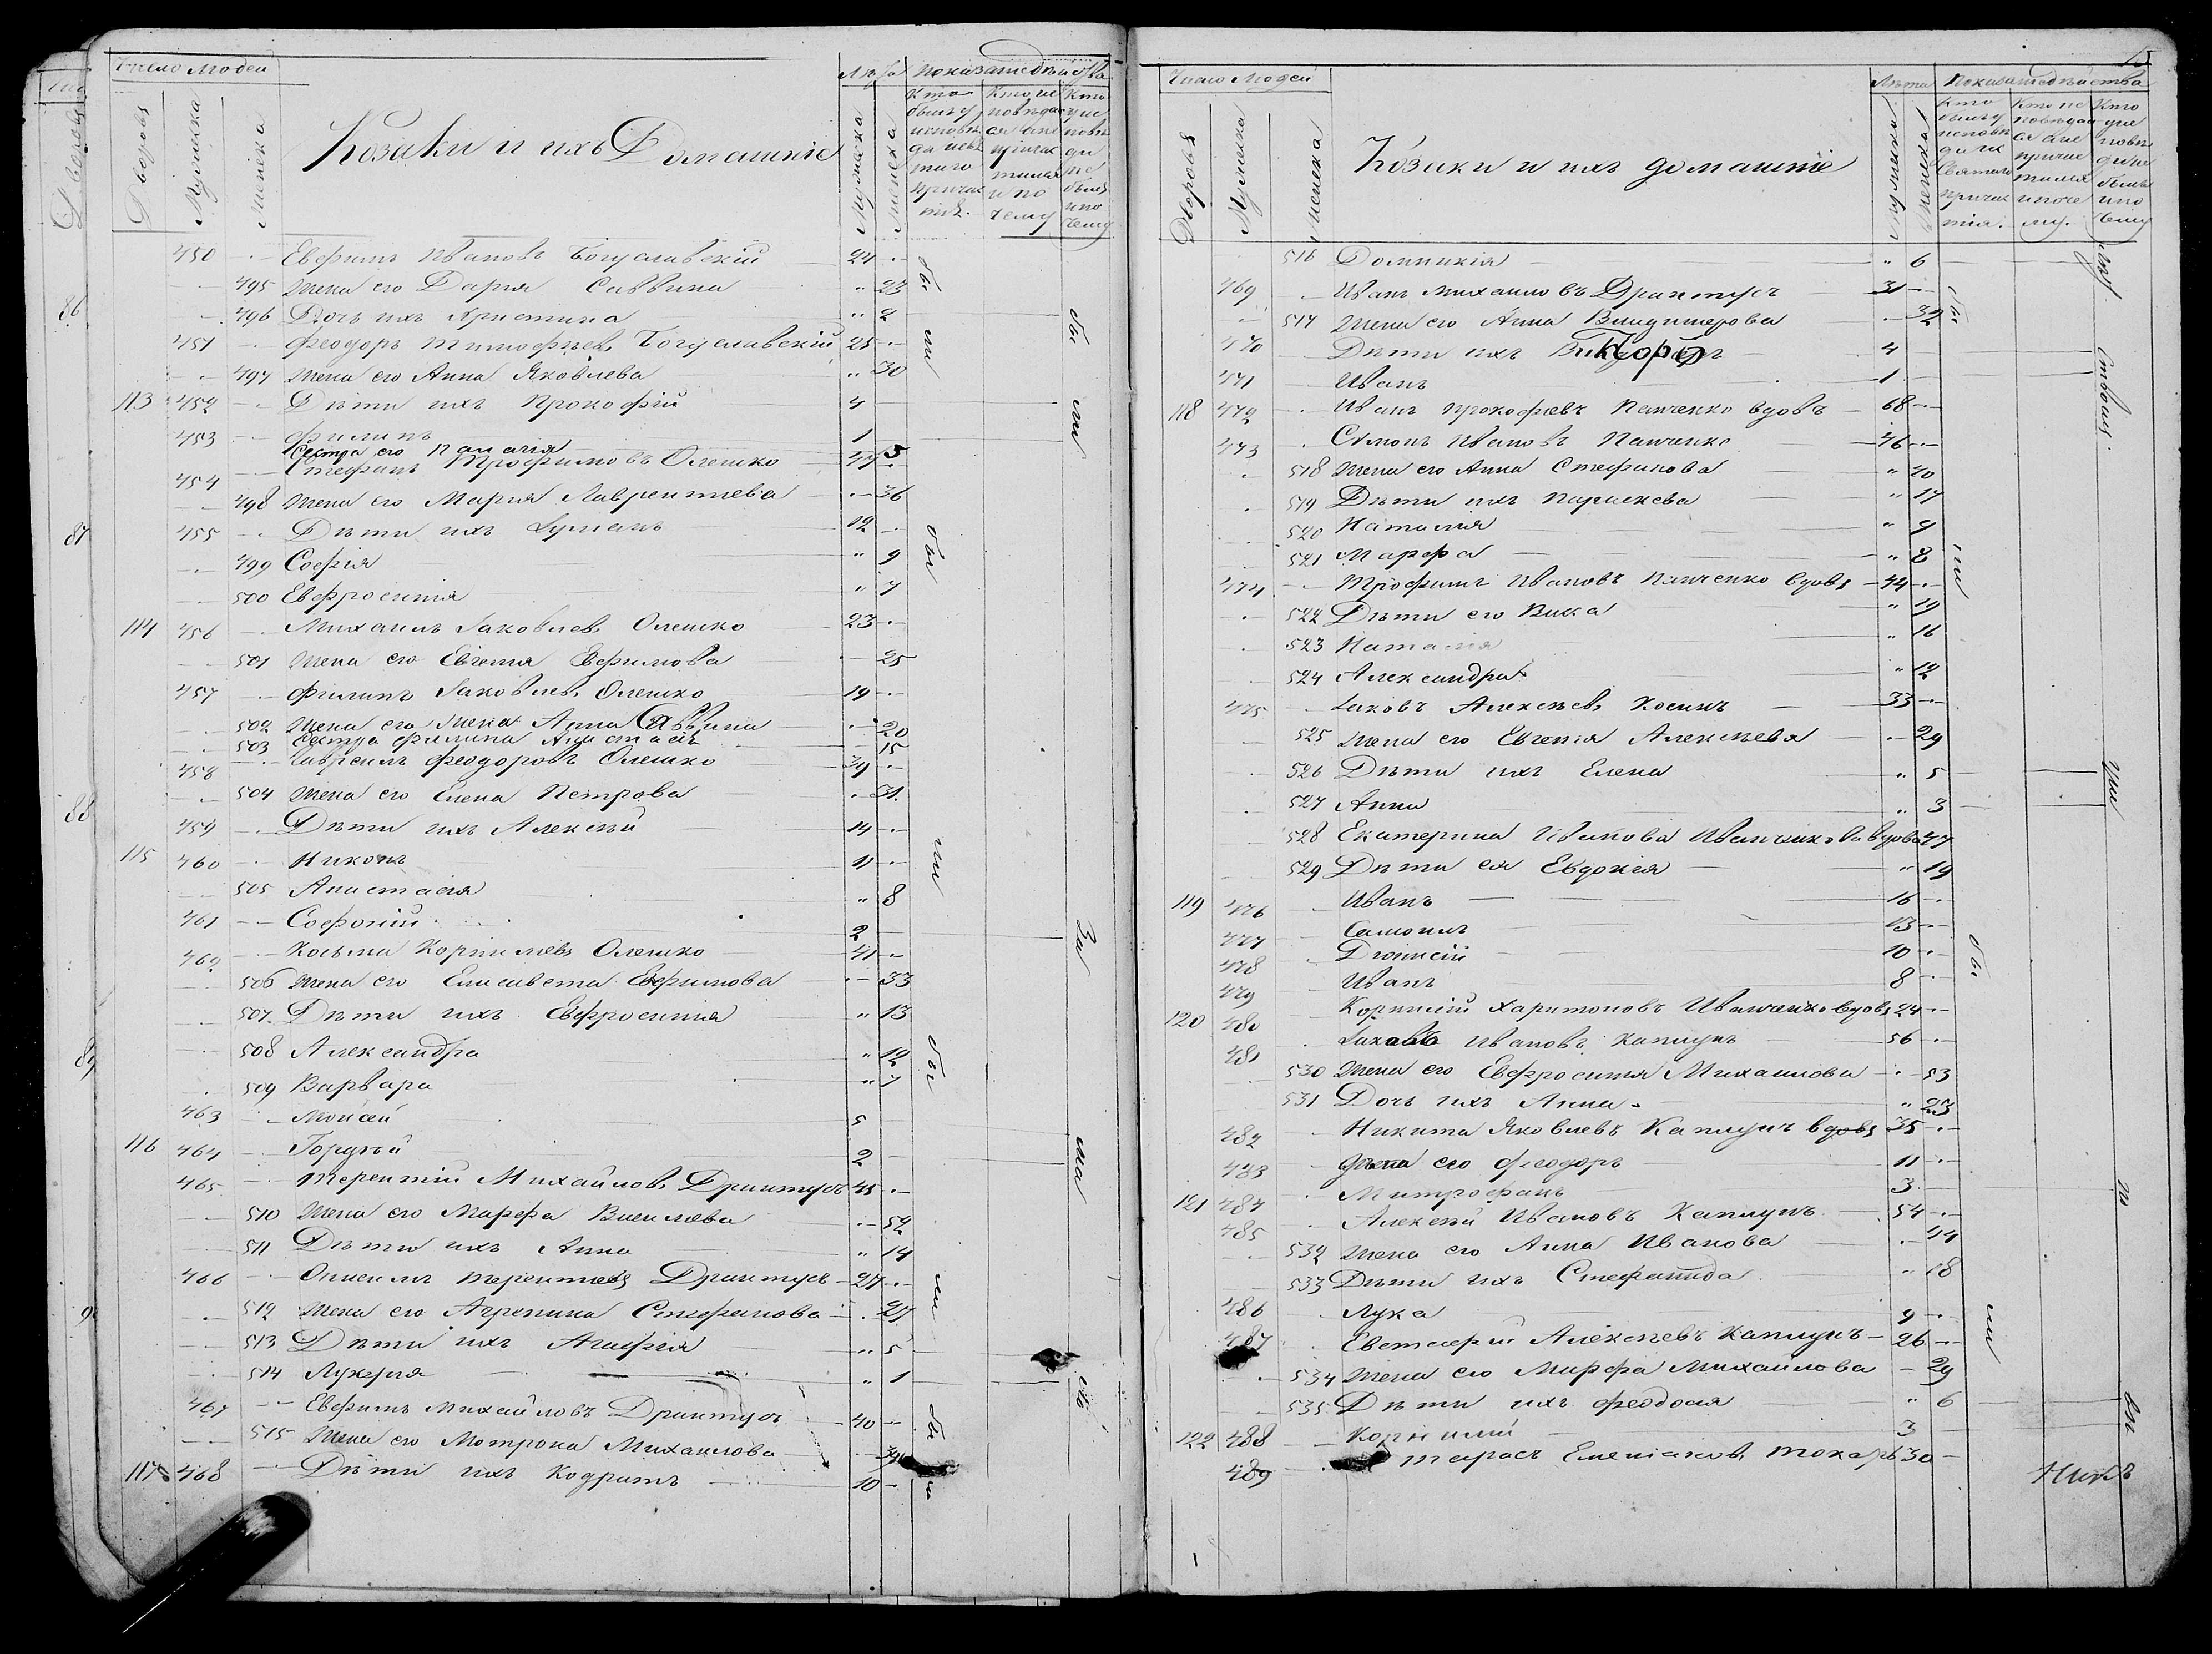 Число людей
Дворовъ
Мужеска
Женска
Козаки и ихъ Домашніе
Лѣта
Мужеска
Женска
Показательства
450 Евфимъ Ивановъ Богуславскій 24
495 Жена его Дарія Саввина 23
496 Дочь ихъ Христина 2
451 Феодоръ Тимофѣевъ Богуславскій 25
497 Жена его Анна Яковлева 30
113 452 Дѣти ихъ Прокофій 4
453 Филипъ 1
Сестра его 5
454 Стефанъ Трофимовъ Олешко 47
498 Жена его Марія Лаврентіева 36
455 Дѣти ихъ 12
499 Софія 9
500 Евфросинія 7
114 456 Михаилъ Іаковлевъ Олешко 23
501 Жена его Евгенія Евфимова 25
457 Филипъ Іаковлевъ Олешко 19
502 Жена его Анна Саввина 20
503 Сестра Филипа Анастасія 15
458 Гавріилъ Феодоровъ Олешко 39
504 Жена его Елена Петрова 31
459 Дѣти ихъ Алексѣй 14
115 460 Никонъ 11
505 Анастасія 8
461 Софоній 2
462 Косьма Корниліевъ Олешко 41
506 Жена его Елисавета Евфимова 33
507 Дѣти ихъ Евфросинія 13
508 Александра 12
509 Варвара 7
463 Моисей 5
116 464 Гордѣй 2
465 Терентій Михайловъ Дрантусъ 45
510 Жена его Марфа Василіева 52
511 Дѣти ихъ Анна 14
466 Онисимъ Терентіевъ Дрантусъ 27
512 Жена его Агрепина Стефанова 27
513 Дѣти ихъ Агафія 5
514 Лукерія 1
467 Евфимъ Михайловъ Дрантусъ 40
515 Жена его Мотрона Михаилова
117 468 Дѣти ихъ Кодратъ 10
86
87
88
89
15
Число Людей
Дворовъ
Мужеска
Женска
Козаки и ихъ домашніе
Лѣта
Мужеска
Женска
Показательства
516 Домникія 6
469 Иванъ Михаиловъ Дрантусъ 31
517 Жена его Анна Владимерова 32
470 Дѣти ихъ Викторъ 4
471 Иванъ 1
118 472 Иванъ Прокофіевъ Панченко вдовъ 68
473 Симонъ Ивановъ Панченко 46
518 Жена его Анна Стефанова 40
519 Дѣти ихъ Параскева 17
520 Наталія 9
521 Марфа 8
474 Трофимъ Ивановъ Панченко вдовъ 44
522 Дѣти его Васса 19
523 Наталія 16
524 Александра 12
475 Іаковъ Алексѣевъ 33
525 Жена его Евгенія Алексѣева 29
526 Дѣти ихъ Елена 5
527 Анна 3
528 Екатерина Иванова Иванченкова вдова 47
529 Дѣти ея Евдокія 19
119 476 Иванъ 16
477 Самоилъ 13
478 Діонисій 10
479 Иванъ 8
120 480 Корнилій Харитоновъ Иванченко вдовъ 24
481 Іаковъ Ивановъ Каплунъ 56
530 Жена его Евфросинія Михаилова 53
531 Дочь ихъ Анна 23
482 Никита Яковлевъ Каплунъ вдовъ 35
483 дѣти его Феодоръ 11
Митрофанъ 3
121 484
485 Алексѣй Ивановъ Каплунъ 54
532 Жена его Анна Иванова 44
533 Дѣти ихъ Стефанида 18
486 Лука 9
487 Евстафій Алексѣевъ Каплунъ 26
534 Жена его Марфа Михайлова 29
535 Дѣти ихъ Феодосія 6
122 488 Корнилій 3
489 Тарасъ Емеліановъ Токарь 30